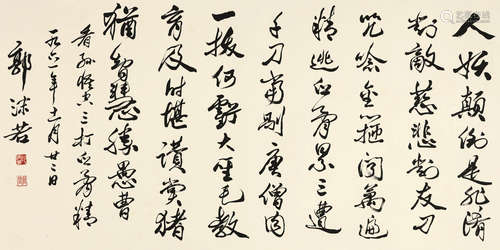 人妖颠倒是非淆
对敌慈悲对友刀
咒念金箍闻万遍
精逃白骨累三遭
千刀当剐唐僧肉
一拔何亏大圣毛教
育及时堪赞赏猪
犹智慧胜愚曹
看孙悟空三打白骨精
一九六一年十一月廿二日
郭沫若